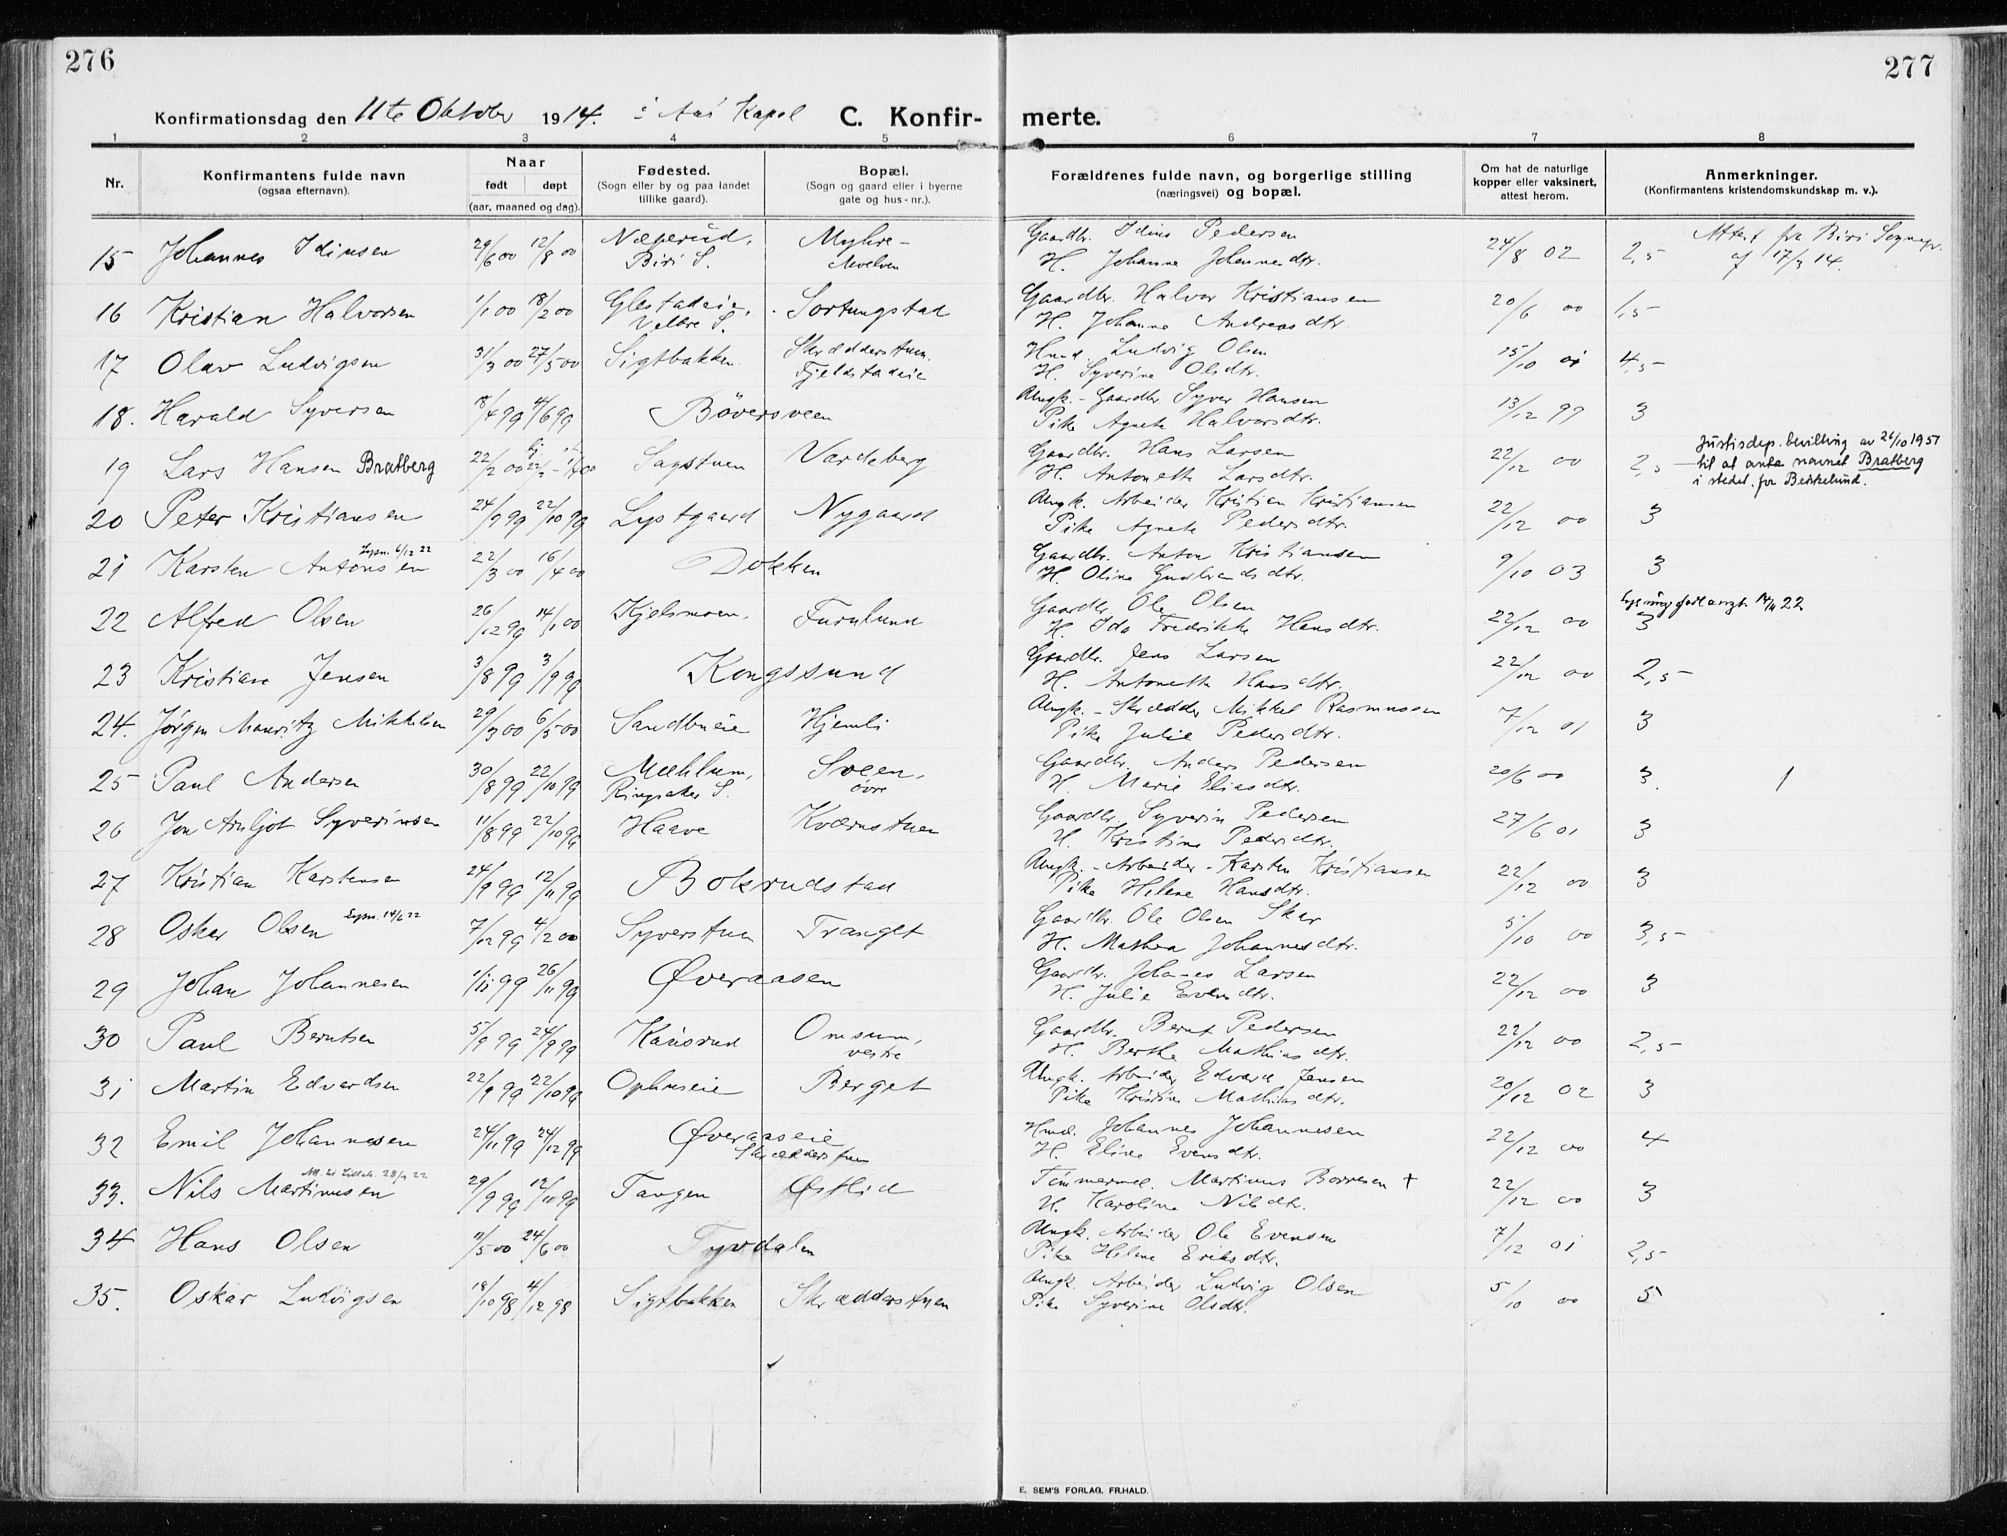 276
277
Konfirmationsdag den 11te Oktober 1914. i Aas Kapel C. Konfir- merte.
1 2 3 4 5 6 7 8
Nr.
Konfirmantens fulde navn
(ogsaa efternavn).
Naar
født døpt
(aar, maaned og dag).
Fødested.
(Sogn eller by og paa landet
tillike gaard).
Bopæl.
(Sogn og gaard eller i byerne
gate og hus-nr.).
Forældrenes fulde navn, og borgerlige stilling
(næringsvei) og bopæl.
Om hat de naturlige
kopper eller vaksinert,
attest herom.
Anmerkninger.
(Konfirmantens kristendomskundskap m. v.).
15 Johannes Idinsen 29/6 00 12/8 00 Næperud, Biri S. Myhre- Gaardbr. Idius Pedersen
H. Johanne Johannesdtr. 24/8 02 2,5 Attest fra Biri Sognepr. af 17/3 14.
16 Kristian Halvorsen 1/1 00 18/2 00 Glestadeie, Veldre S. Sortungstad Gaardbr. Halvor Kristiansen
H. Johanne Andreasdtr. 20/6 00 1,5
17 Olav Ludvigsen 31/3 00 27/5 00 Sigtbakken Skrædderstuen Fjeldstadeie Hmd. Ludvig Olsen
H. Syverine Olsdtr. 15/10 01 4,5
18. Harald Syversen 18/4 99 4/6 99 Bøversveen Ungk. - Gaardbr. Syver Hansen
Pike Agnete Halvorsdtr. 13/12 99 3
19 Lars Hansen Bratberg 22/2 00 Sagstuen Vardeberg Gaardbr. Hans Larsen
H. Antonette Larsdtr. 22/12 00 2,5 Justisdep. bevilling av 26/10 1951
til at anta navnet Bratberg
i stedet for Berkelund.
20 Peter Kristiansen 24/9 99 22/10 99 Lystgaard Nygaard Ungk. Arbeider Kristian Kristiansen
Pike Agnete Pedersdtr. 22/12 00 3
21 Karsten Antonsen Lysn. 6/12 22 22/3 00 16/4 00 Dokken Gaardbr. Anton Kristiansen
H. Oline Gudbrandsdtr. 9/10 03 3
22 Alfred Olsen 26/12 99 14/1 00 Kjelsmoen Furulund Gaardbr. Ole Olsen
H. Ida Fredrikke Hansdtr. 22/12 00 3 22
23 Kristian Jensen 3/8 99 3/9 99 Kongssund Gaardbr. Jens Larsen
H. Antonette Hansdtr. 22/12 00 2,5
24. Jørgen Mauritz Mikkelsen 29/3 00 6/5 00 Sandbueie Hjemli Ungk. - Skrædder Mikkel Rasmussen
Pike Julie Pedersdtr. 7/12 01 3
25 Paul Andersen 30/8 99 22/10 99 Mæhlum, Ringsaker S. Sveen, øvre Gaardbr. Anders Pedersen
H. Marie Eliasdtr. 20/6 00 3. 1
26 Jon Arnljot Syverinsen 11/8 99 22/10 99 Haave Kværnstuen Gaardbr. Syverin Pedersen
H. Kristine Pedersdtr. 27/6 01 3
27 Kristian Karstensen 24/9 99 12/11 99 Bokrudstad Ungk. - Arbeider - Karsten Kristiansen
Pike Helene Hansdtr. 22/12 00 3
28 Oskar Olsen Lysn. 14/6 22 7/12 99 4/2 00 Syverstuen Tranget Gaardbr. Ole Olsen Skar
H. Mathea Johannesdtr. 5/10 00 3,5
29 Johan Johannesen 1/11 99 26/11 99 Øveraasen Gaardbr. Johannes Larsen
H. Julie Evensdtr. 22/12 00 3
30 Paul Berntsen 5/9 99 24/9 99 Kausrud Onsum, vestre Gaardbr. Bernt Pedersen
H. Berthe Mathiasdtr. 22/12 00 2,5
31 Martin Edvardsen 22/9 99 22/10 99 Ophuseie Berget Ungk. Arbeider Edvard Jensen
Pike Kristine Mathiasdtr. 20/12 02 3
32 Emil Johannesen 24/11 99 24/12 99 Øveraaseie Skrædderstuen Hmd. Johannes Johannesen
H. Eline Evensdtr. 22/12 00 4
33. Nils Martinusen 29/9 99 12/11 99 Tangen Østlid Tømmermd. Martinus Borresen +
H. Karoline Nilsdtr. 22/12 00 3
34 Hans Olsen 11/5 00 24/6 00 Tyvdalen Ungk. Arbeider Ole Evensen
Pike Helene Eriksdtr. 7/12 01 2,5
35. Oskar Ludvigsen 18/10 98 4/12 98 Sigtbakken Skrædderstuen Ungk. Arbeider Ludvig Olsen
Pike Syverine Olsdtr. 5/10 00 5
E. SEM'S FORLAG. FR.HALD.